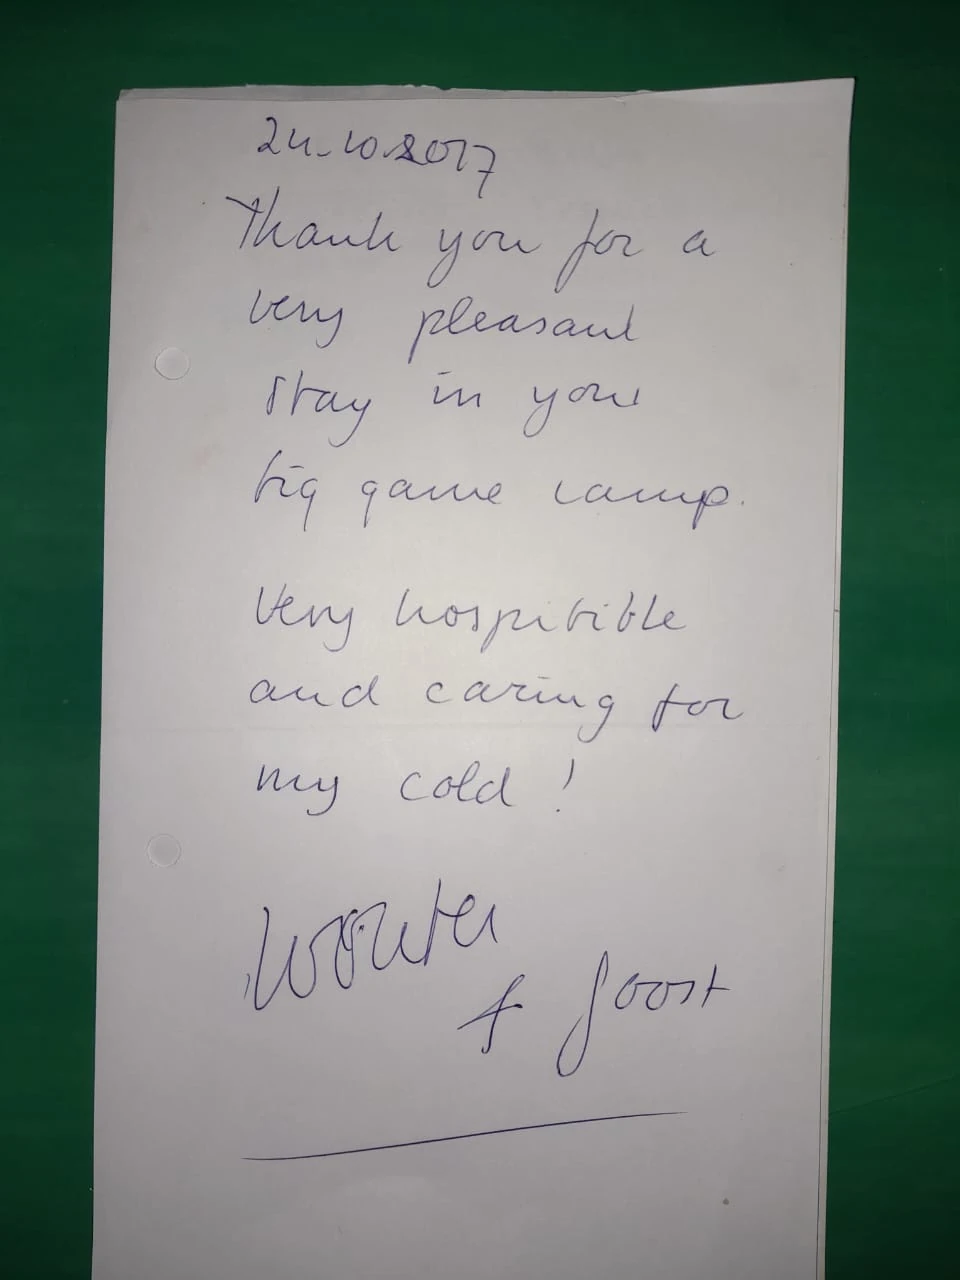 24-10-2017
Thank you for a
very pleasant
stay in your
big game camp.
Very hospitible
and caring for
my cold!
Wouter
& Joost